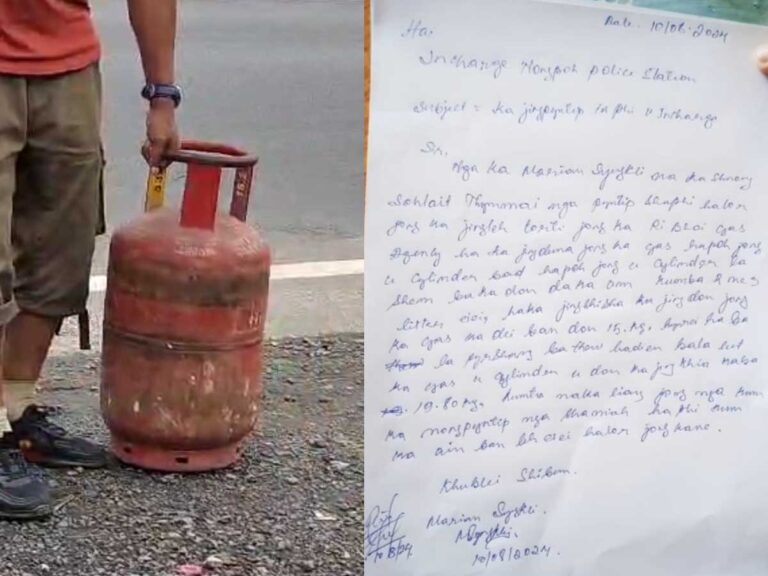 15.2
Date. 10/08.2024
Ha:
Incharge Nongpoh Police Station
Subject = Ka jingpyntip ia phi u Incharge
Sir.
Nga ka Marian Syngkli na ka Shnong
Sohlait Thymmai nga pyntip ha phi halor
jong ka jingleh jong ka Ri Bhoi Gas
Agency ha ka jong ka gas hapoh jong
u Cylinder bad hapoh jong u Cylinder la
Shem ba ka don da ka um kumba 2 ne 3
litter haka jingshisha ka jingdon jong
ka Gas ka dei ban don 15. Kg, ha ba
la ba thew hadien bala kut
ka gas u Cylinder u don ka jingkhia kaba
19.80 Kg. Kumta naka liang jong nga kum
ka nongpyntip nga ha phi kum
ka ain ban bh halor jong kane.
Khublei Shibun.
Marian Syngkli.
10/08/2024